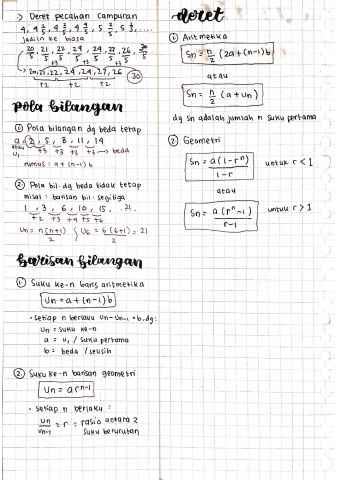 > Deret pecahan campuran
4, 4 1/5, 4 2/5, 4 4/5, 5 2/5, 5 1/5, ....
Jadiin ke biasa
20/5, 21/5, 22/5, 24/5, 24/5, 27/5, 26/5, 30/5
20, 21, 22, 24, 24, 27, 26 (30)
+2 +2 +2
pola bilangan
① Pola bilangan dg beda tetap
a, 2, 5, 8, 11, 14
atau u₁ +3 +3 +3 +3 → beda
rumus : a + (n-1) b
② Pola bil. dg beda tidak tetap
misal : barisan bil. segitiga
1, 3, 6, 10, 15, .21.
+2 +3 +4 +5 +6
Un = n(n+1)/2 U6 = 6(6+1)/2 = 21
barisan bilangan
① Suku ke-n baris aritmetika
Un = a + (n-1) b
• setiap n berlaku Un - Un-1 = b, dg:
Un = suku ke-n
a = u₁ / suku pertama
b = beda / selisih
② Suku ke-n barisan geometri
Un = arⁿ⁻¹
• setiap n berlaku :
Un/Un-1 = r = rasio antara 2
suku berurutan
deret
① Aritmetika
Sn = n/2 (2a + (n-1) b)
atau
Sn = n/2 (a + Un)
dg Sn adalah jumlah n suku pertama
② Geometri
Sn = a(1-rⁿ)/1-r untuk r < 1
atau
Sn = a(rⁿ-1)/r-1 untuk r > 1